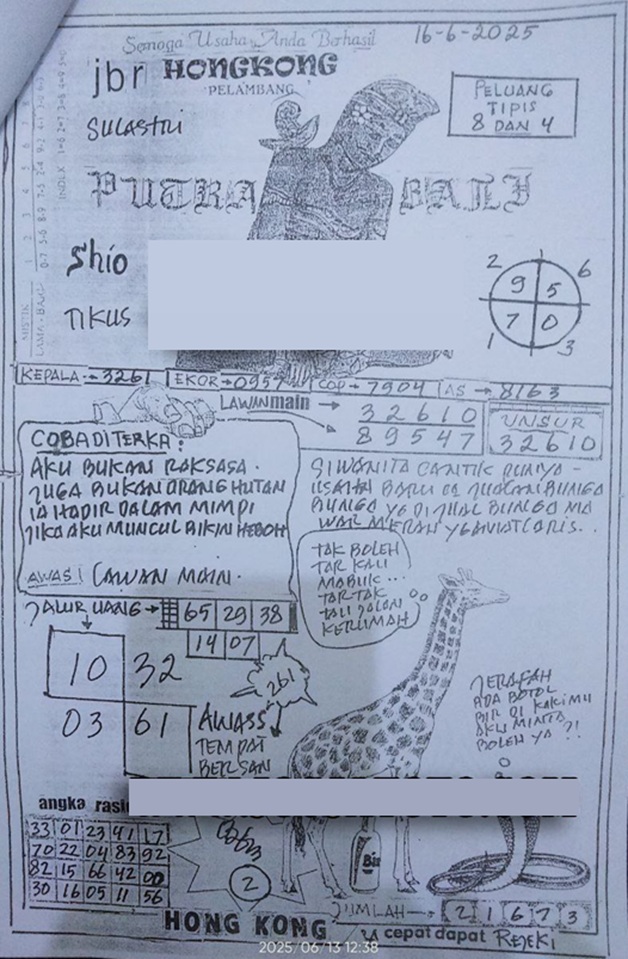 Semoga Usaha Anda Berhasil
16-6-2025
jbr HONGKONG
PELAMBANG
SULASTRI
PELUANG
TIPIS
8 DAN 4
PUTRA BALI
Shio
TIKUS
2 6
9 5
7 0
1 3
KEPALA → 3261 EKOR → 0957 COP → 7904 AS → 8163
LAWAN main →
32610
89547
UNSUR
32610
COBA DITERKA :
AKU BUKAN RAKSASA.
JUGA BUKAN ORANG HUTAN
IA HADIR DALAM MIMPI
JIKA AKU MUNCUL BIKIN HEBOH
AWAS! LAWAN MAIN.
SIWANITA CANTIK PUNYA -
USAHA BARU JUALAN BUNGA
BUNGA YG DIJUAL BUNGA MA
WAR MERAH YG LARIS..
TAK BOLEH
KALI
MABUK...
JALAN
KERUMAH
JALUR UANG → 65 29 38
14 07
10 32
03 61
261
AWASS
TEMPAT
BERSAN
JERAFAH
ADA BOTOL
BIR DI KAKIMU
AKU MINTA
BOLEH YA ?!
angka
33 01 23 41 17
70 22 04 83 92
82 15 66 42 00
30 16 05 11 56
2
Bir
JUMLAH → 2 1 6 7 3
HONG KONG
cepat dapat REJEKI
2025/06/13 12:38